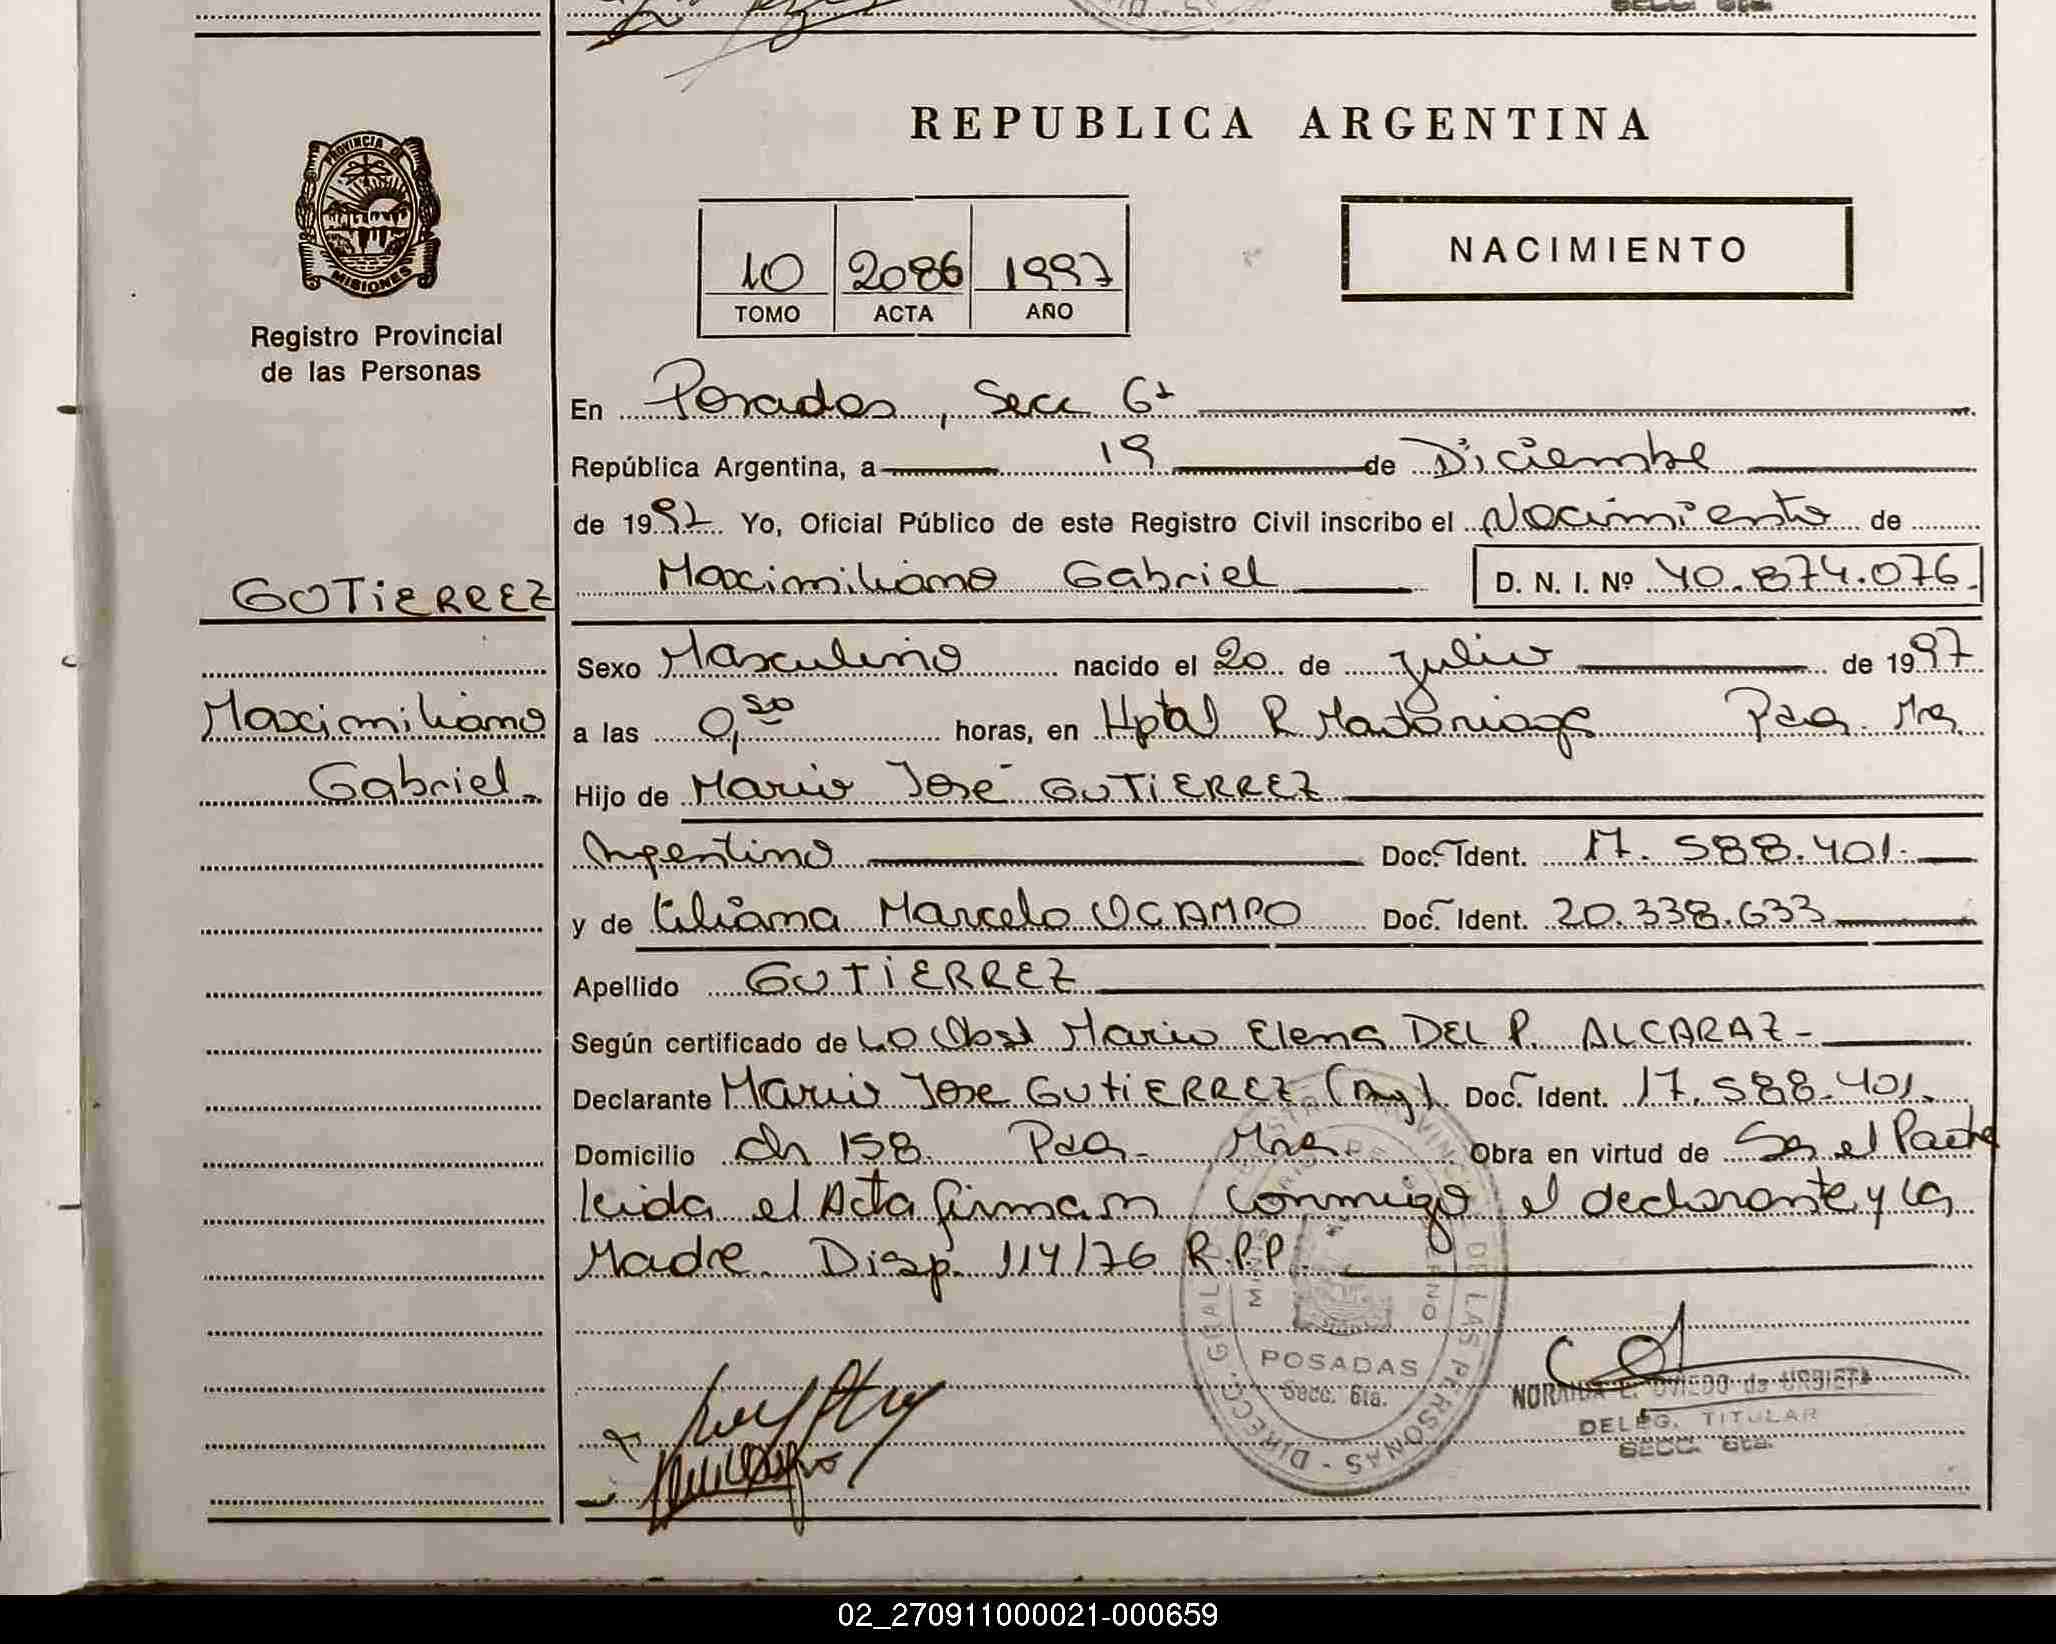 SECC. 6ta.
REPUBLICA ARGENTINA
PROVINCIA DE
MISIONES
Registro Provincial
de las Personas
10 2086 1997
TOMO ACTA AÑO
NACIMIENTO
En Posadas, Secc 6ª
República Argentina, a 19 de Diciembre
de 1997 Yo, Oficial Público de este Registro Civil inscribo el Nacimiento de
Maximiliano Gabriel D. N. I. Nº 40.874.076.
GUTIERREZ
Maximiliano
Gabriel.
Sexo Masculino nacido el 20 de Julio de 1997
a las 0,50 horas, en Hptal R Madariaga Pdas. Mnes
Hijo de Mario José GUTIERREZ
Argentino Doc. Ident. 17.588.401.
y de Liliana Marcela OCAMPO Doc. Ident. 20.338.633
Apellido GUTIERREZ
Según certificado de La Obst Maria Elena DEL P. ALCARAZ-
Declarante Mario Jose GUTIERREZ (Arg). Doc. Ident. 17.588.401.
Domicilio Ch 158. Pdas. Mnes. Obra en virtud de Ser el Padre
leida el Acta firman conmigo el declarante y la
Madre. Disp. 114/76 R.P.P.
DIRECC. GRAL. DE LAS PERSONAS
POSADAS
Secc. 6ta.
NORMA E. OVIEDO de URBIETA
DELEG. TITULAR
SECC. 6ta.
02_270911000021-000659